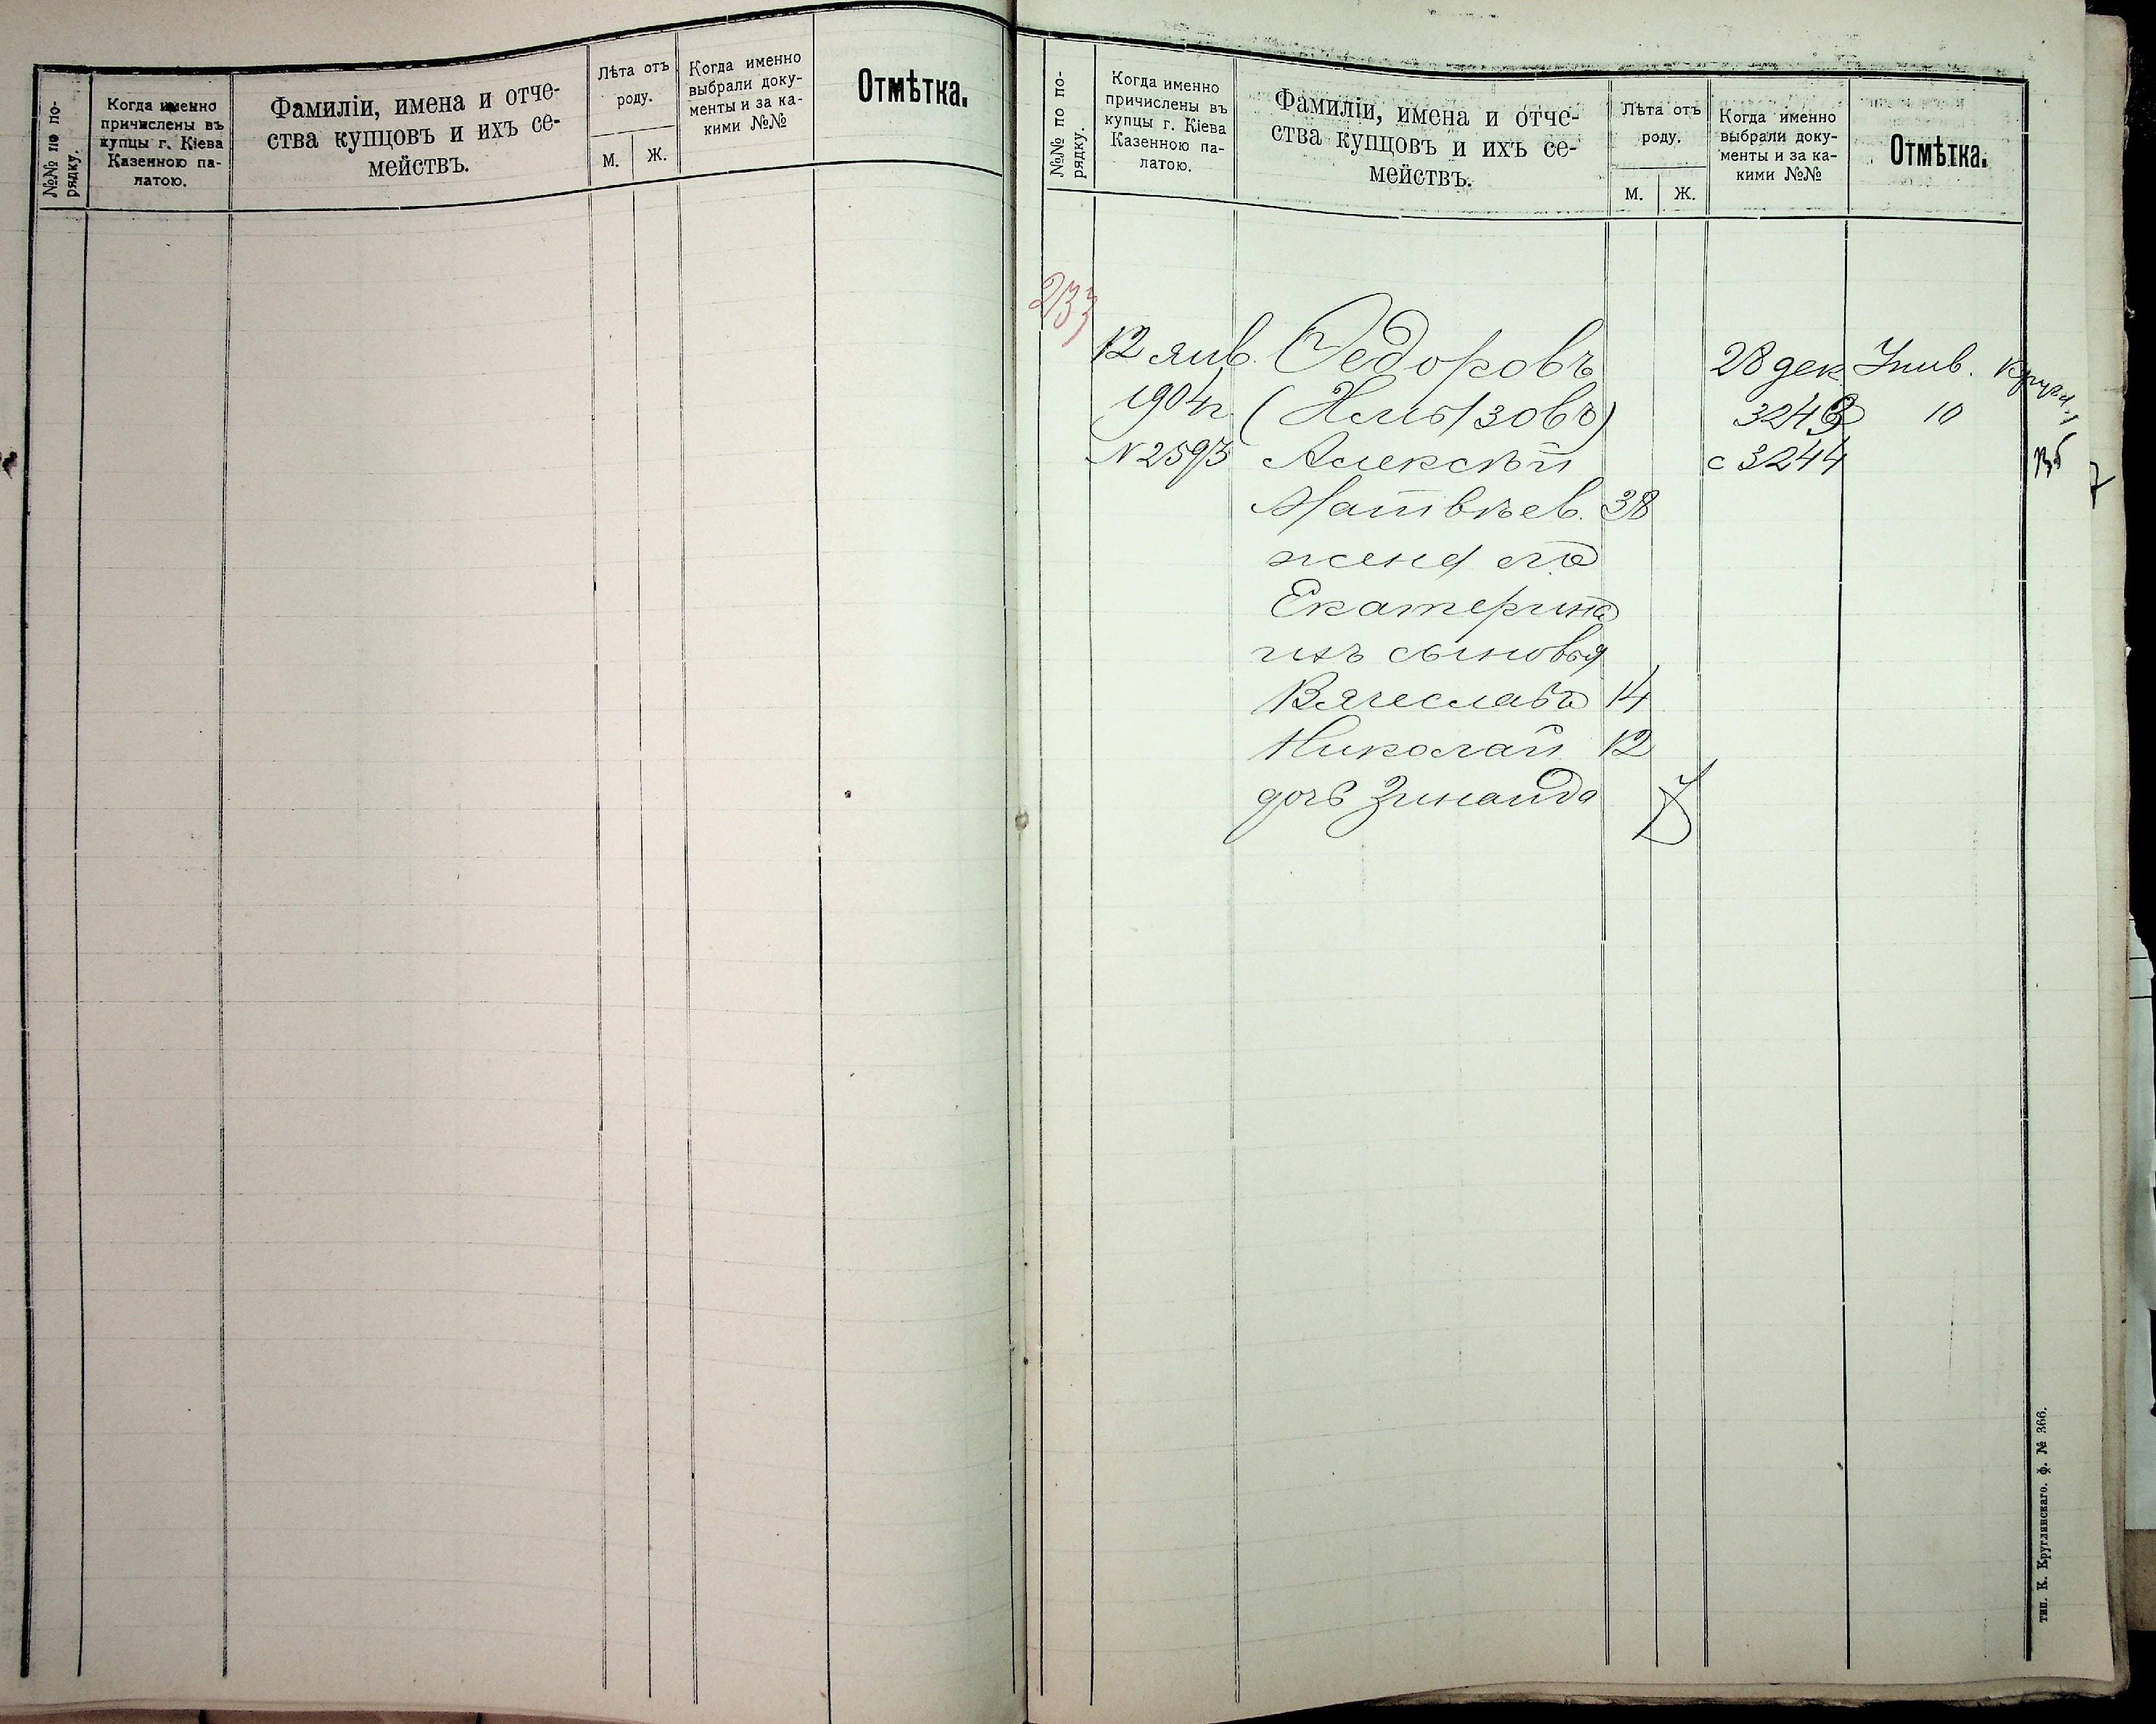 №№ по по-
рядку.
Когда именно
причислены въ
купцы г. Кіева
Казенною па-
латою.
Фамиліи, имена и отче-
ства купцовъ и ихъ се-
мействъ.
Лѣта отъ
роду.
М.
Ж.
Когда именно
выбрали доку-
менты и за ка-
кими №№
Отмѣтка.
№№ по по-
рядку.
Когда именно
причислены въ
купцы г. Кіева
Казенною па-
латою.
Фамиліи, имена и отче-
ства купцовъ и ихъ се-
мействъ.
Лѣта отъ
роду.
М.
Ж.
Когда именно
выбрали доку-
менты и за ка-
кими №№
Отмѣтка.
233
12 янв. Федоровъ 28 дек
1904г 3243 10
N 2593 Алексѣй с 3244
Матвѣев. 38
жена его
Екатерина
ихъ сыновья
Вячеславъ 14
Николай 12
дочь Зинаида
тип. К. Круглянскаго. ф. № 366.